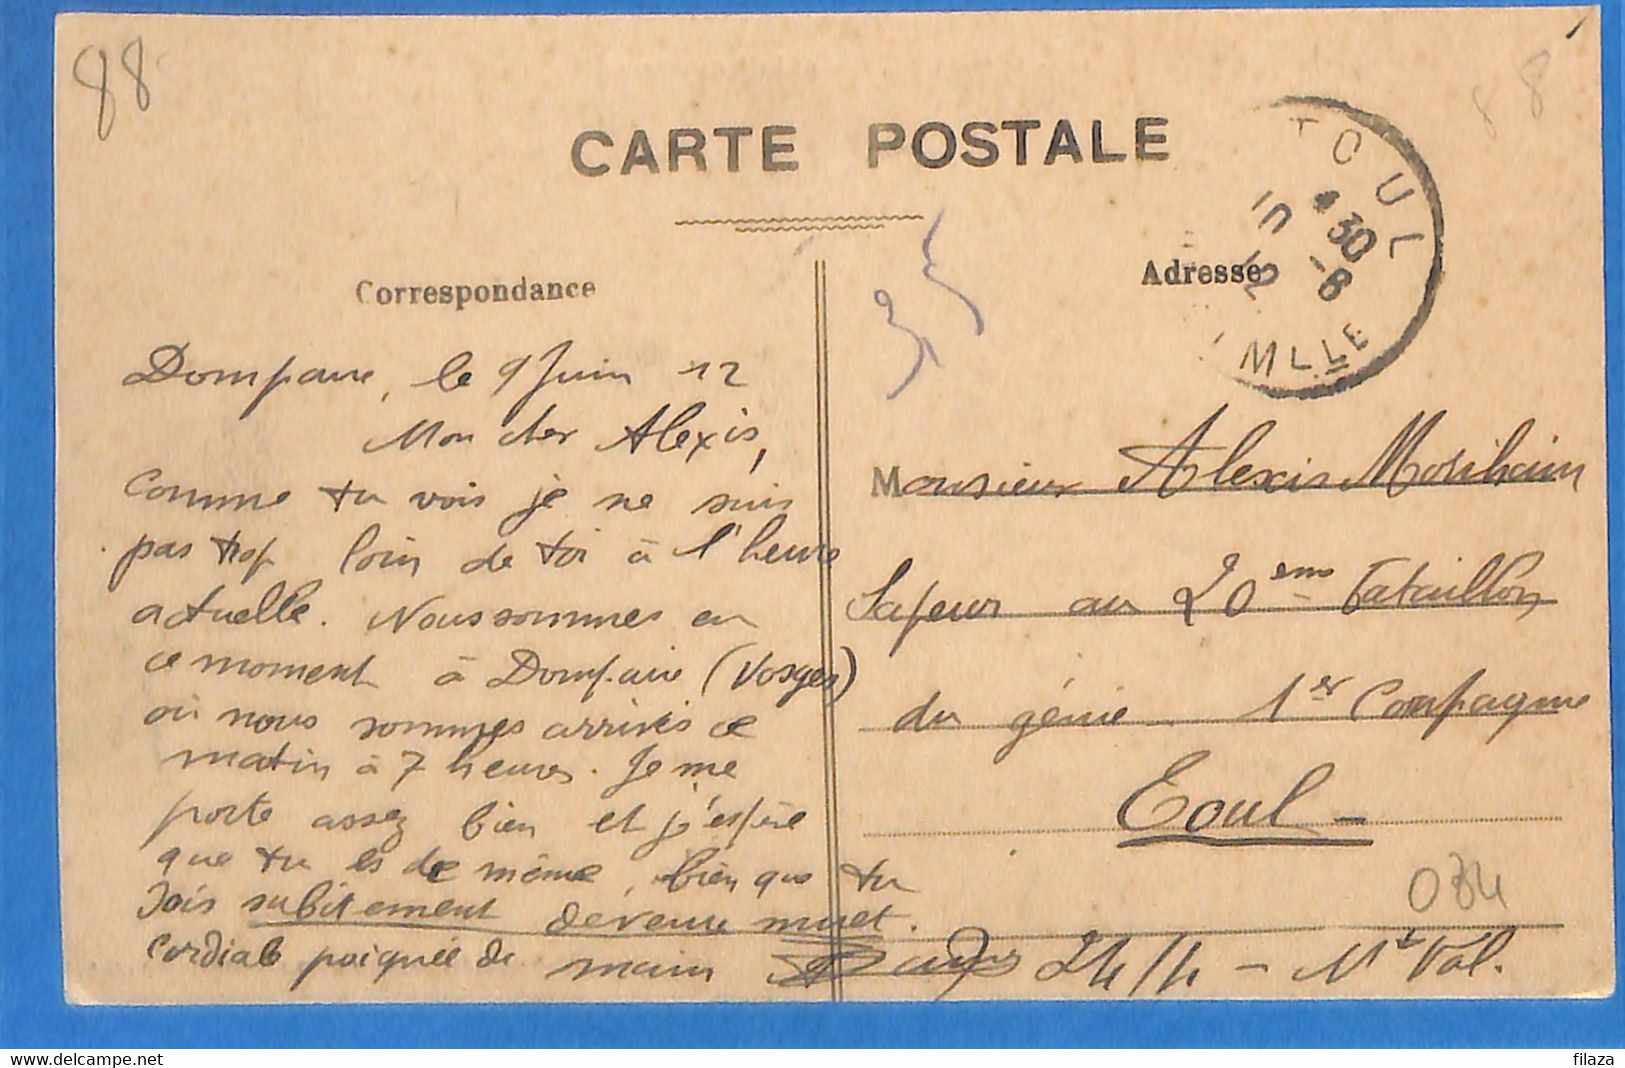 88
88
CARTE POSTALE
TOUL
4 30
10 -6
12
MLLE
Correspondance
Adresse
Dompaire, le 9 Juin 12
Mon cher Alexis,
Comme tu vois je ne suis
pas trop loin de toi à l'heure
actuelle. Nous sommes en
ce moment à Dompaire (Vosges)
où nous sommes arrivés ce
matin à 7 heures. Je me
porte assez bien et j'espère
que tu es de même, bien que tu
sois subitement devenu muet.
Cordiale poignée de main
Monsieur Alexis
Sapeur au 20eme Bataillon
du génie 1er Compagnie
Toul -
034
24/4 - Mt Val.
delcampe.net
filaza